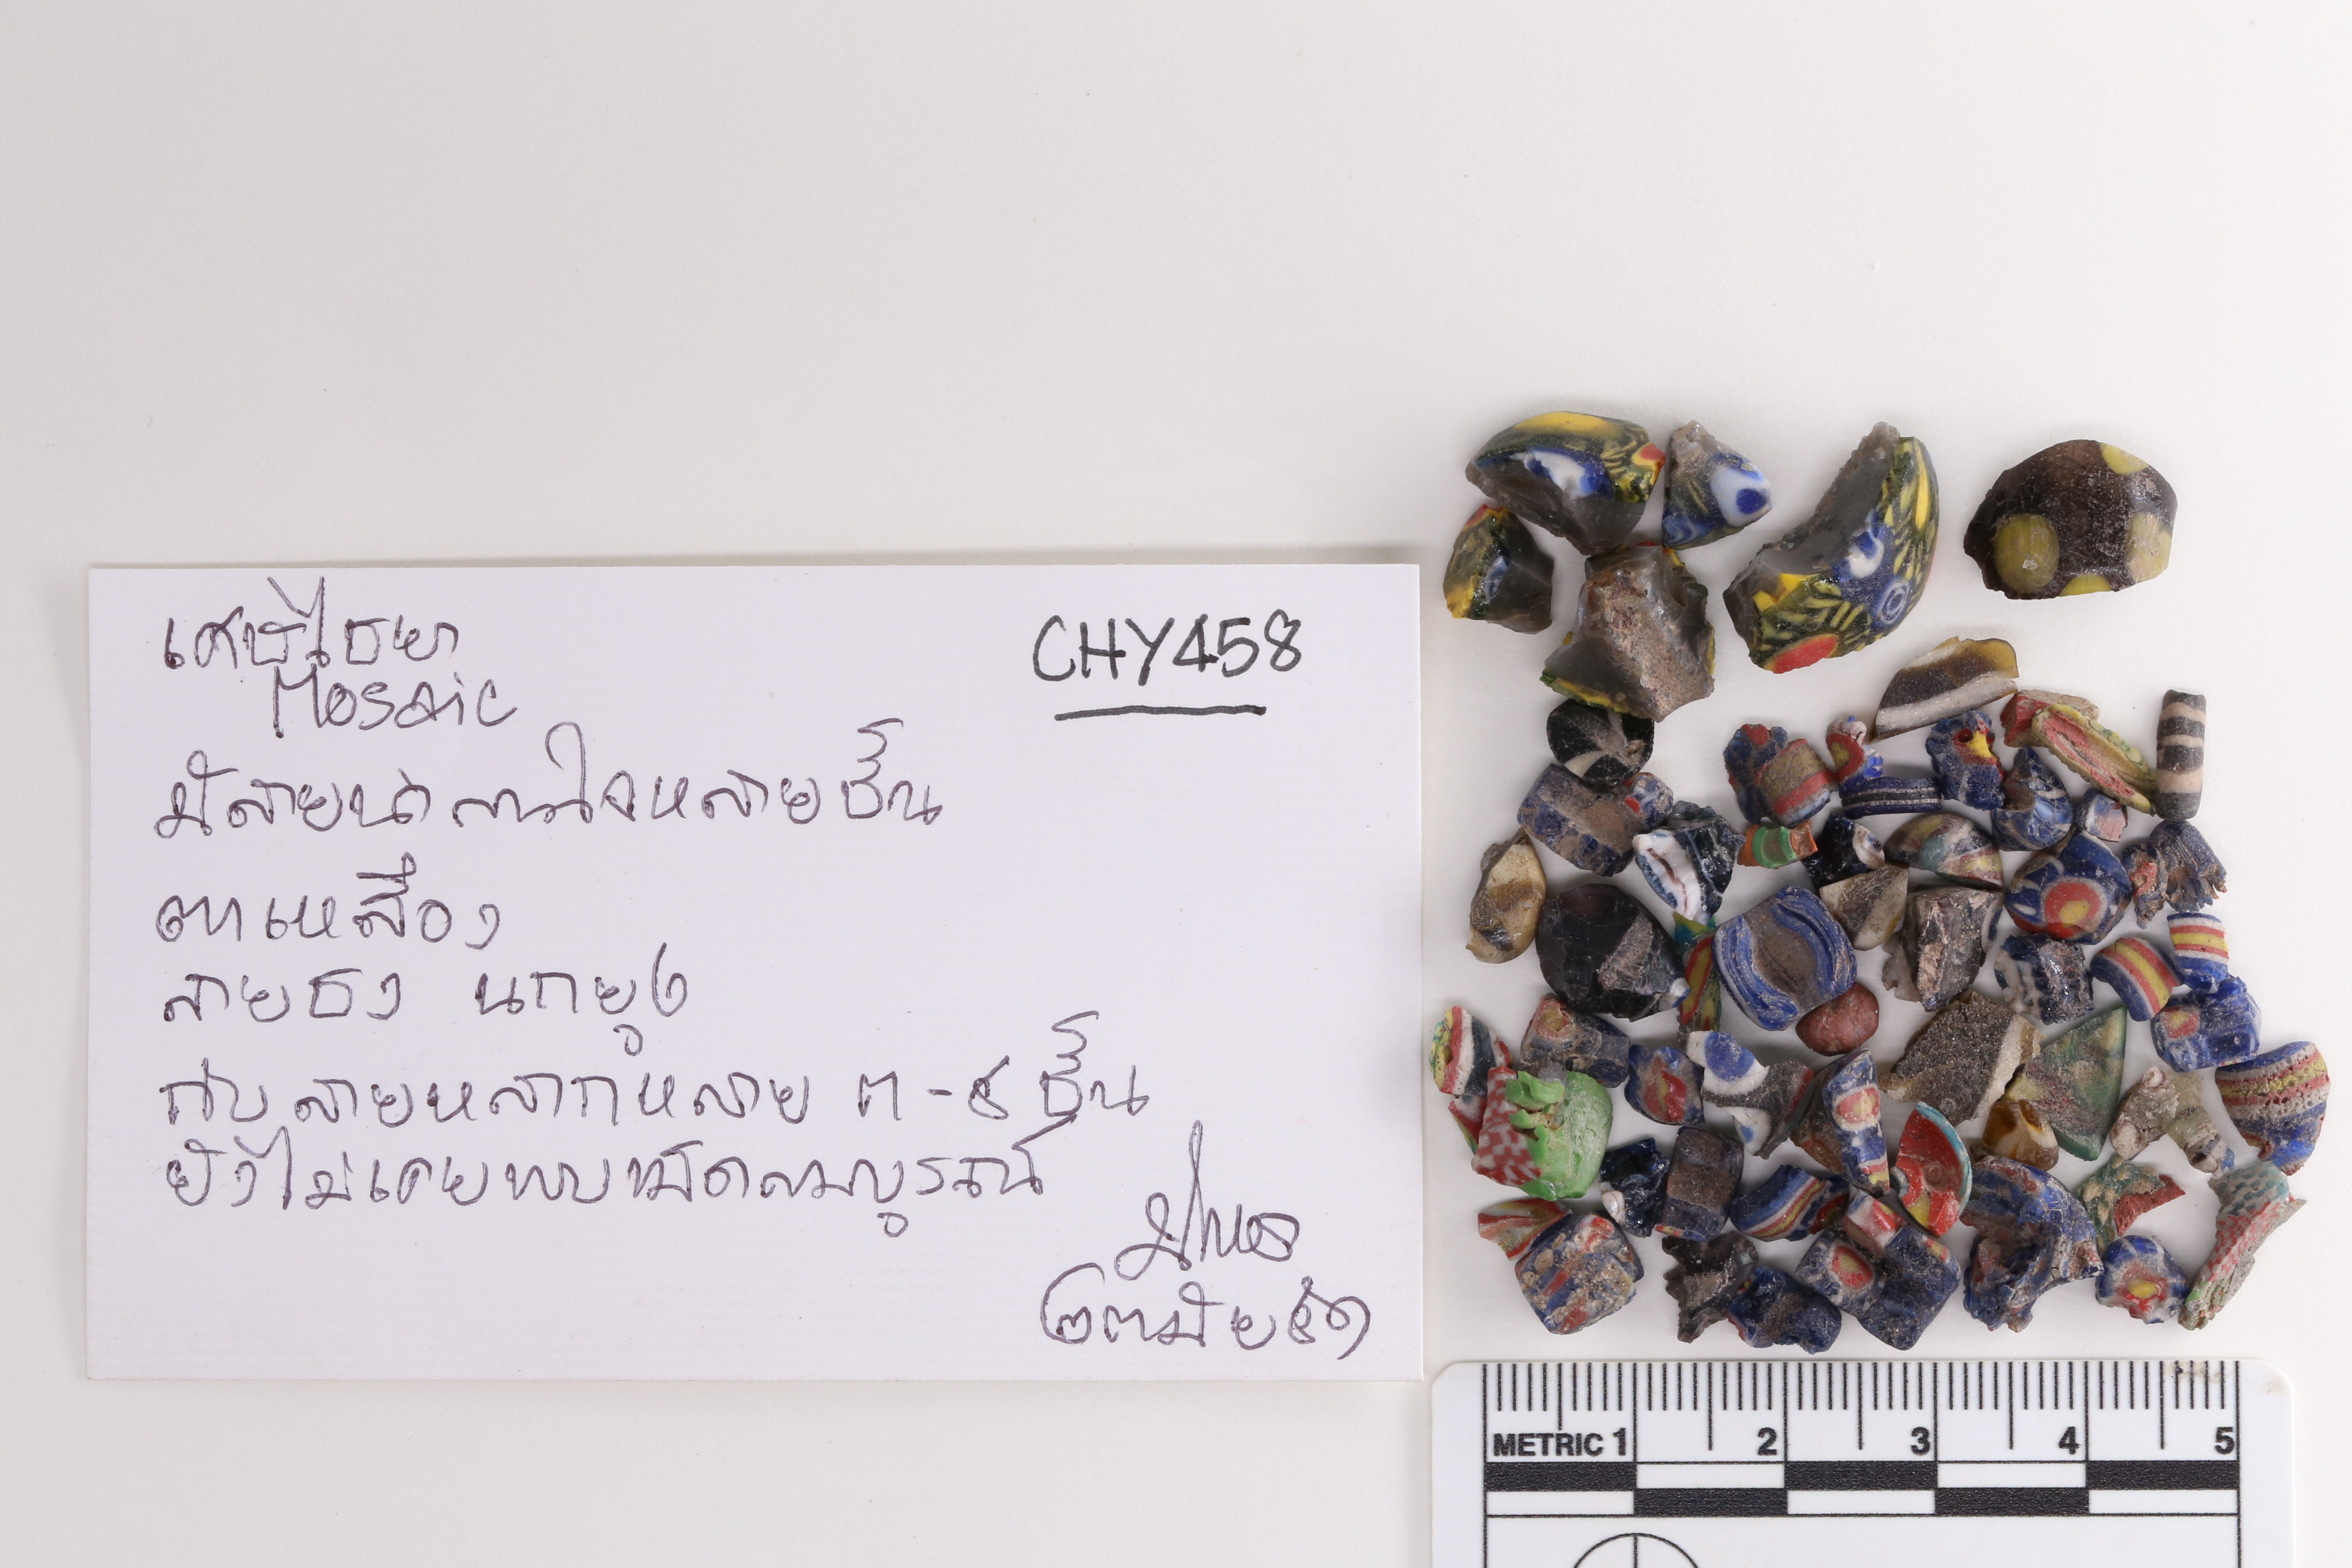 เศษไชยา
Mosaic
CHY458
มีลายน่าสนใจหลายชิ้น
ตาเหลือง
ลายธง นกยูง
กับลายหลากหลาย ๓-๔ ชิ้น
ยังไม่เคยพบเม็ดสมบูรณ์
METRIC 1 2 3 4 5